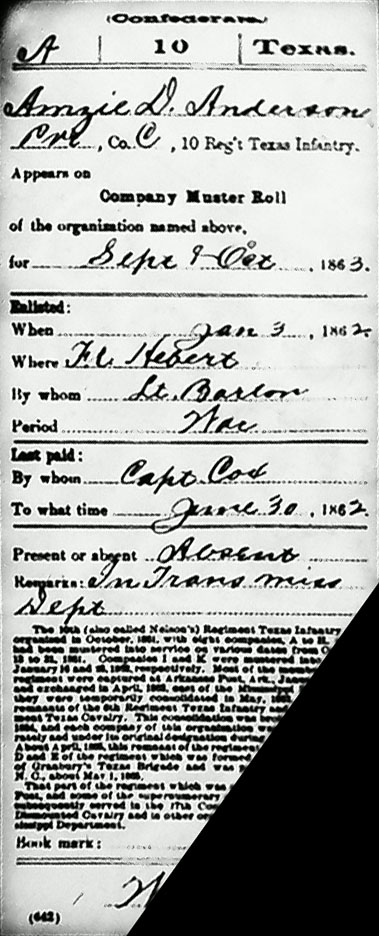 (Confederate.)
A | 10 | Texas.
Amzie D. Anderson
Pvt, Co. C, 10 Reg't Texas Infantry.
Appears on
Company Muster Roll
of the organization named above,
for Sept & Oct, 1863.
Enlisted:
When Jan 3, 1862
Where Ft. Hebert
By whom Lt. Barton
Period War
Last paid:
By whom Capt. Cox
To what time June 30, 1862.
Present or absent Absent
Remarks: In Trans miss
Dept
The 10th (also called Nelson's) Regiment Texas Infantry
organized in October, 1861, with eight companies, A to H,
had been mustered into service on various dates from O
13 to 31, 1861. Companies I and K were mustered into
January 16 and 22, 1862, respectively. Most of the mem
regiment were captured at Arkansas Post, Ark., Janu
and exchanged in April, 1863, east of the Mississippi
they were temporarily consolidated in May, 186
remnants of the 6th Regiment Texas Infantry
ment Texas Cavalry. This consolidation was
1864, and each company of this organization
rately and under its original designation
About April, 1865, this remnant of the regiment
D and E of the regiment which was formed
of Granbury's Texas Brigade and was
N. C., about May 1, 1865.
That part of the regiment which was
Post, and some of the supernumerary
subsequently served in the 17th Con
Dismounted Cavalry and in other or
sissippi Department.
Book mark:
(642)